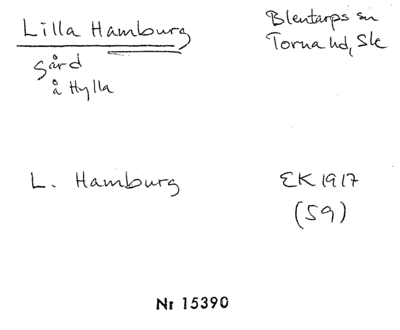 Lilla Hamburg
Blentarps sn
Torna hd, Sk
gård
å Hylla
L. Hamburg
EK 1917
(59)
Nr 15390